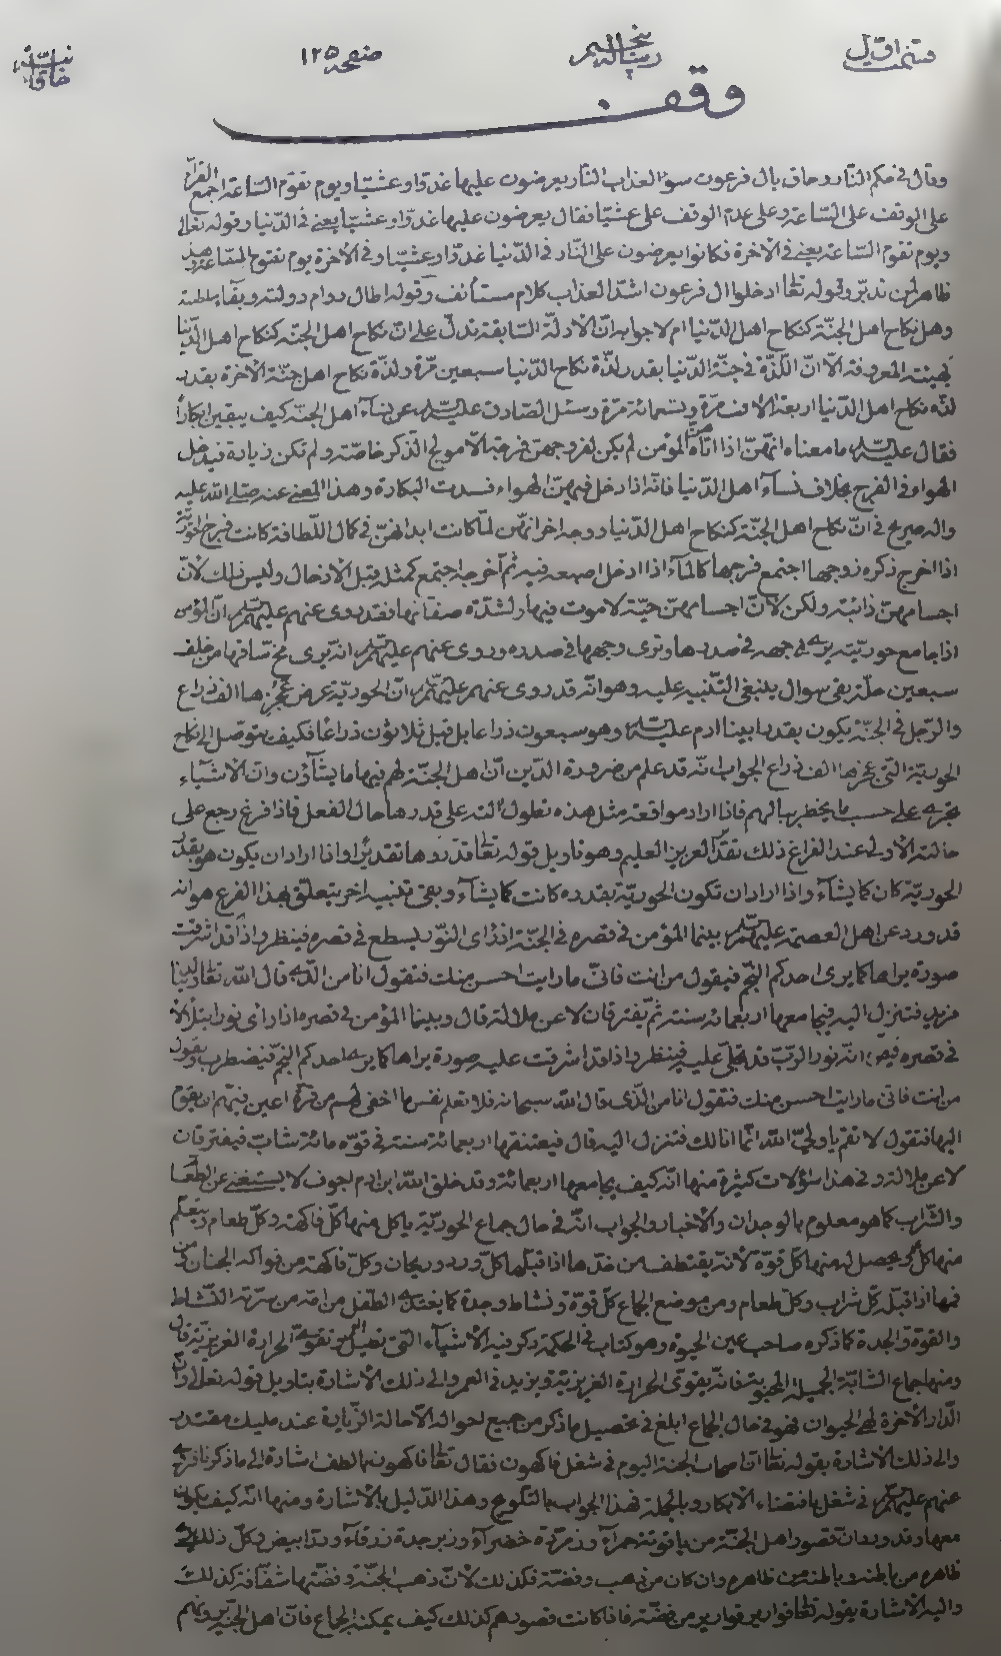 صفحه ١٢٥
وقف
وقال في حكم النار وحاق بال فرعون سوء العذاب النار يعرضون عليها غدوّا وعشيّا ويوم تقوم الساعة اجمع القرآء
على الوقف على الساعة وعلى عدم الوقف على عشيّا فقال يعرضون عليها غدوّا وعشيّا يعني في الدّنيا وقوله تعالى
ويوم تقوم الساعة يعني في الآخرة فكانوا يعرضون على النّار في الدّنيا غدوّا وعشيّا وفي الآخرة يوم تقوم الساعة وهذا
ظاهر لمن تدبّر وقوله تعالى ادخلوا ال فرعون اشدّ العذاب كلام مستأنف وقوله اطال دوام دولته وبقاء سلطنته
وهل نكاح اهل الجنّة كنكاح اهل الدّنيا ام لا جوابه انّ الادلّة السّابقة تدلّ على انّ نكاح اهل الجنّة كنكاح اهل الدّنيا
بهيئته المعروفة الّا انّ اللّذّة في جنّة الدّنيا بقدر لذّة نكاح الدّنيا سبعين مرّة ولذّة نكاح اهل جنّة الآخرة بقدر
لذّة نكاح اهل الدّنيا اربعة الاف مرّة وتسعمائة مرّة وسئل الصّادق عليه السلام عن نسآء اهل الجنّة كيف يبقين ابكارا
فقال عليه السلام ما معناه انّهنّ اذا اتاهنّ المؤمن لم يكن لفروجهنّ خرق الّا مولج الذّكر خاصّة ولم تكن زيادة فيدخل
الهواء في الفرج بخلاف نسآء اهل الدّنيا فانّه اذا دخل فيهنّ الهواء فسدت البكارة وهذا المعنى عنه صلى الله عليه
واله صريح في انّ نكاح اهل الجنّة كنكاح اهل الدّنيا ووجه اخر انّهنّ لمّا كانت ابدانهنّ في كمال اللّطافة كانت فرج الحوريّة
اذا اخرج ذكره زوجها اجتمع فرجها كالماء اذا ادخل اصبعه فيه ثم اخرجه اجتمع كمثل قبل الادخال وليس ذلك لانّ
اجسامهنّ ذائبة ولكن لانّ اجسامهنّ حيّة لا موت فيها ولشدّة صفائها فقد روى عنهم عليهم السلام انّ المؤمن
اذا جامع حوريّته يرى وجهه في صدرها وترى وجهها في صدره وروى عنهم عليهم السلام انّه يرى مخّ ساقها من خلف
سبعين حلّة بقى سوال ينبغى التّنبيه عليه وهو انّه قد روى عنهم عليهم السلام انّ الحوريّة عرض عجزها الف ذراع
والرّجل في الجنّة يكون بقدر ابينا ادم عليه السلام وهو سبعون ذراعا بل قيل ثلاثون ذراعا فكيف يتوصّل الى نكاح
الحوريّة التي عجزها الف ذراع الجواب انّه قد علم من ضرورة الدّين انّ اهل الجنّة لهم فيها ما يشآؤن وانّ الاشيآء
تجرى على حسب ما يخطر ببالهم فاذا اراد مواقعة مثل هذه تطول الته على قدرها حال الفعل فاذا فرغ رجع على
حالته الاولى عند الفراغ ذلك تقدير العزيز العليم وهو تاويل قوله تعالى قدّروها تقديرا واذا اراد ان يكون هو بقدر
الحوريّة كان كما يشآء واذا اراد ان تكون الحوريّة بقدره كانت كما يشآء وبقى تنبيه اخر يتعلّق بهذا الفرع هو انه
قد ورد عن اهل العصمة عليهم السلام بينما المؤمن في قصره في الجنّة اذ راى النّور يسطع في قصره فينظر واذا قد اشرقت
صورة يراها كما يرى احدكم النّجم فيقول من انت فانّي ما رايت احسن منك فتقول انا من الّذى قال الله تعالى ولدينا
مزيد فتنزل اليه فيجامعها اربعمائة سنة ثم يفترقان لا عن ملالة قال وبينما المؤمن في قصره اذا راى نورا يتلألأ
في قصره انّه نور الربّ قد تجلّى عليه فينظر واذا قد اشرقت عليه صورة يراها كما يرى احدكم النّجم فيضطرب ويقول
من انت فانى ما رايت احسن منك فتقول انا من الذى قال الله سبحانه فلا تعلم نفس ما اخفى لهم من قرّة اعين فيهم ان يقوم
اليها فتقول لا تقم يا وليّ الله انّما انا لك فتنزل اليه قال فيعتنقها اربعمائة سنة في قوّة مائة شابّ فيفترقان
لا عن ملالة وفي هذا سؤلات كثيرة منها انّه كيف يجامعها اربعمائة وقد خلق الله ابن ادم اجوف لا يستغنى عن الطّعام
والشّراب كما هو معلوم بالوجدان والاخبار والجواب انّه في حال جماع الحوريّة ياكل منها كلّ فاكهة وكلّ طعام ويتعلّم
منها كلّ ويحصل له منها كلّ قوّة لانّه يقتطف من خدّها اذا قبّلها كلّ ورد وريحان وكلّ فاكهة من فواكه الجنان ومن
فمها اذا قبّله كلّ شراب وكلّ طعام ومن موضع الجماع كلّ قوّة ونشاط وجدة كما يغتذى الطّفل من امّه من سرّته النّشاط
والقوّة والجدة كما ذكره صاحب عين الحيوة وهو كتاب في الحكمة ذكر فيه الاشيآء التى تطيل العمر وتقوّى الحرارة الغريزيّة قال
ومنها جماع الشابّة الجميلة المحبوبة فانّه يقوّى الحرارة الغريزيّة ويزيد في العمر والى ذلك الاشارة بتاويل قوله تعالى وانّ
الدّار الآخرة لهى الحيوان فهو في حال الجماع ابلغ في تحصيل ما ذكر من جميع احواله الّا حالة الزّيارة عند مليك مقتدر
والى ذلك الاشارة بقوله تعالى انّ اصحاب الجنّة اليوم في شغل فاكهون فقال تعالى فاكهون بالطف اشارة الى ما ذكرنا فروى
عنهم عليهم السلام في شغل بافتضاء الابكار وبالجملة فهذا الجواب بالتّلويح وهذا الدّليل بالاشارة ومنها انّه كيف يكون
معها وقد ورد انّ قصور اهل الجنّة من ياقوتة حمرآء وزمرّدة خضرآء وزبرجدة زرقآء ودرّ ابيض وكلّ ذلك يرى
ظاهره من باطنه وباطنه من ظاهره وان كان من ذهب وفضّة فكذلك لانّ ذهب الجنّة وفضّتها شفّافة كذلك
واليه الاشارة بقوله تعالى قوارير قوارير من فضّة فاذا كانت قصورهم كذلك كيف يمكنه الجماع فانّ اهل الجنّة يرونهم